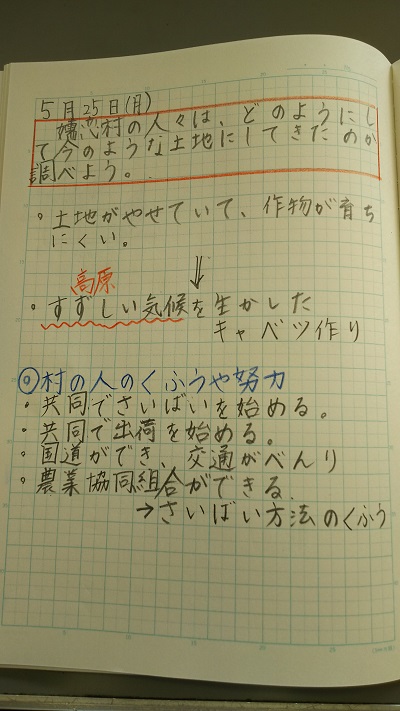 5月25日(月)
嬬恋村の人々は、どのようにし
て今のような土地にしてきたのか
調べよう。
・土地がやせていて、作物が育ち
にくい。
⇓
高原
・すずしい気候を生かした
キャベツ作り
◎村の人のくふうや努力
・共同でさいばいを始める。
・共同で出荷を始める。
・国道ができ、交通がべんり
・農業協同組合ができる。
→さいばい方法のくふう